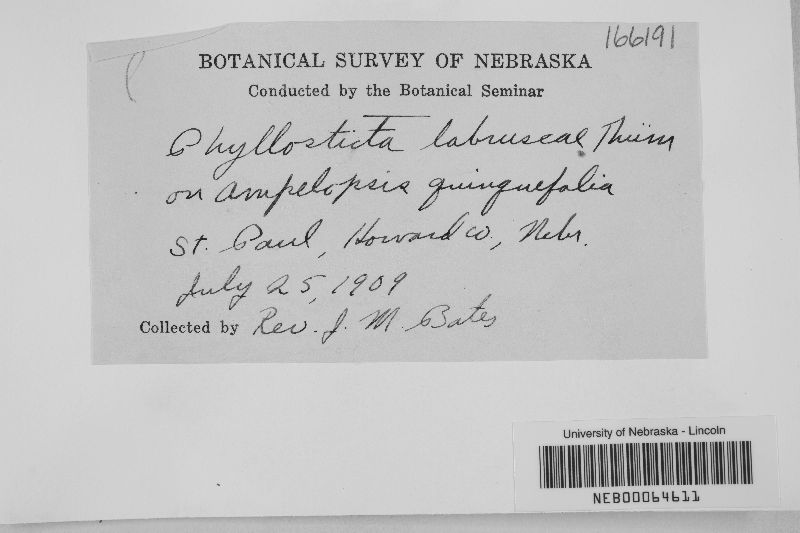 166191
BOTANICAL SURVEY OF NEBRASKA
Conducted by the Botanical Seminar
Phyllosticta labruscae Thüm
on Ampelopsis quinquefolia
St. Paul, Howard Co, Nebr.
July 25, 1909
Collected by Rev. J. M. Bates
University of Nebraska - Lincoln
NEB00064611